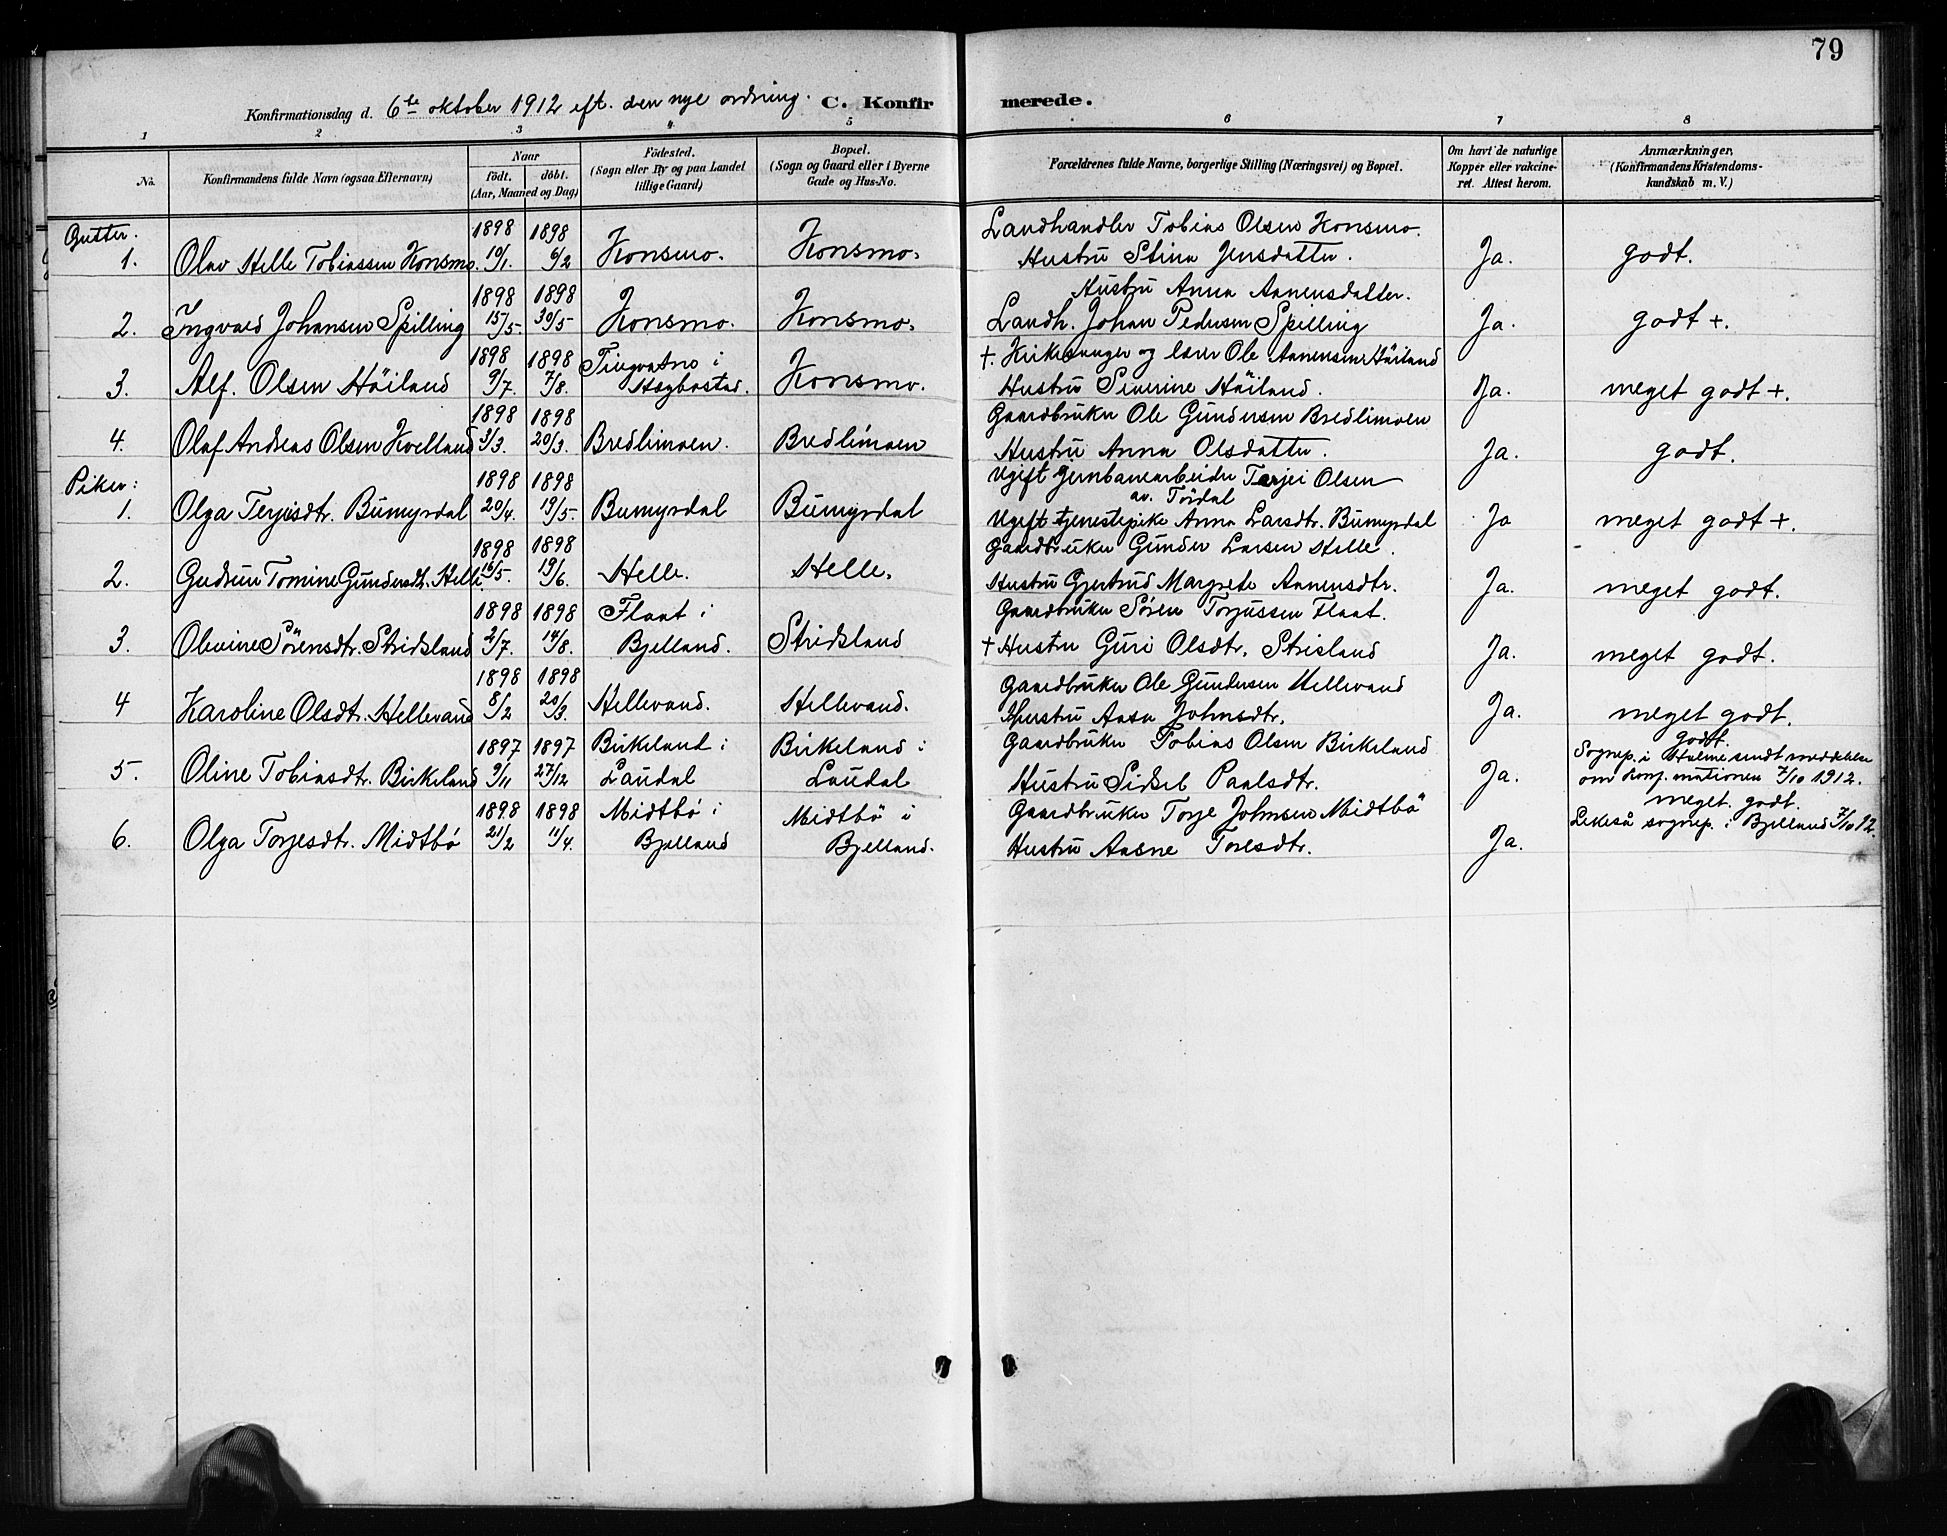 79
Konfirmationsdag d. 6te oktober 1912 eft. den nye ordning. C. Konfir merede.
1 2 3 4 5 6 7 8
No. Konfirmandens fulde Navn (ogsaa Efternavn) Naar født. døbt. (Aar, Maaned og Dag) Fødested. (Sogn eller By og paa Landet tillige Gaard) Bopæl. (Sogn og Gaard eller i Byerne Gade og Hus-No. Forældrenes fulde Navne, borgerlige Stilling (Næringsvei) og Bopæl. Om havt de naturlige Kopper eller vakcineret. Attest herom. Anmærkninger, (Konfirmandens Kristendomskundskab m. V.)
Gutter. 1898 1898 Landhandler Tobias Olsen Konsmo.
1. Olav Helle Tobiassen Konsmo. 10/1. 6/2 Konsmo. Konsmo. Hustru Stina Jensdatter. Ja. godt.
1898 1898 Hustru Anna Aanensdatter.
2. Ingvald Johansen Spilling 15/5. 30/5 Konsmo. Konsmo. Landh. Johan Pedersen Spilling Ja. godt +.
1898 1898 Tingvatno i +. Kirkesanger og lærer Ole Aanensen Höiland
3. Alf. Olsen Höiland 9/7. 7/8. Hægbostad. Konsmo. Hustru Severine Höiland. Ja. meget godt +.
1898 1898 Gaardbruker Ole Gundersen Bredlimoen
4. Olaf Andreas Olsen Kvelland 3/3. 20/3. Bredlimoen. Bredlimoen Hustru Anna Olsdatter. Ja. godt.
Piker: 1898 1898 Ugift Jernbanearbeider Terjei Olsen
av. Tördal
1. Olga Terjesdtr. Bumyrdal 20/4. 19/5. Bumyrdal Bumyrdal Ugift tjenestepike Anna Larsdtr. Bumyrdal Ja meget godt +.
1898 1898 Gaardbruker Gunder Larsen Helle.
2. Gudrun Tomine Gundersdtr. Helle. 16/5. 19/6. Helle. Helle. Hustru Gjertrud Margrete Aanensdtr. Ja. meget godt.
1898 1898 Flaat i Gaardbruker Sören Torjussen Flaat.
3. Olevine Sörensdtr. Stridsland 2/7. 14/8. Bjelland. Stridsland + Hustru Guri Olsdtr. Strisland Ja. meget godt.
1898 1898 Gaardbruker Ole Gundersen Hellevand
4 Karoline Olsdtr. Hellevand 8/2 20/3. Hellevand. Hellevand. Hustru Aasa Johnsdtr. Ja. meget godt.
1897 1897 Birkeland i Birkeland i Gaardbruker Tobias Olsen Birkeland godt.
5. Oline Tobiasdtr. Birkeland 9/11 27/12 Laudal Laudal Hustru Sirkel Paalsdtr. Ja. Sognep. i Holme sendt meddelelse om konf.mationen 7/10 1912.
1898 1898 Midtbö i Midtbö i Gaardbruker Torje Johnsen Midtbö meget. godt.
6. Olga Torjesdtr. Midtbö 21/2 11/4. Bjelland Bjelland. Hustru Aasne Toresdtr. Ja. Likeså sognep. i Bjelland 7/10 12.